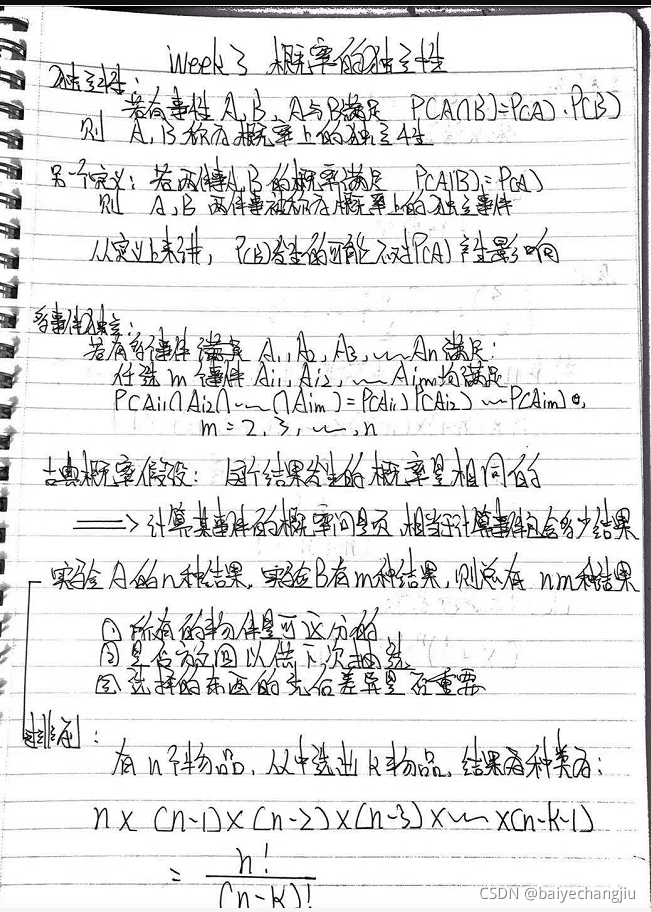 week3 概率的独立性
独立性：
若有事件 A,B，A与B满足 P(A∩B)=P(A)·P(B)
则 A,B称为概率上的独立性
另个定义：若两件事A,B的概率满足 P(A|B)=P(A)
则 A,B 两件事被称为概率上的独立事件
从定义上来讲，P(B)发生的可能不对P(A)产生影响
多事件独立：
若有多事件 满足 A1,A2,A3,…An满足：
任选m个事件 Ai1,Ai2,…Aim均满足
P(Ai1∩Ai2∩…∩Aim)=P(Ai1)P(Ai2)…P(Aim)
m=2,3,…,n
古典概率假设：每个结果发生的概率是相同的
=> 计算某事件的概率问题，相当于计算事件包含多少结果
实验A的n种结果，实验B有m种结果，则总有 nm种结果
① 所有的物件是可区分的
② 是否放回以供下次抽
③ 选择的东西的先后差异是否重要
排列：
有n个物品，从中选出k物品，结果 种类有：
n×(n-1)×(n-2)×(n-3)×…×(n-k-1)
= n!/(n-k)!
CSDN @baiyechangjiu